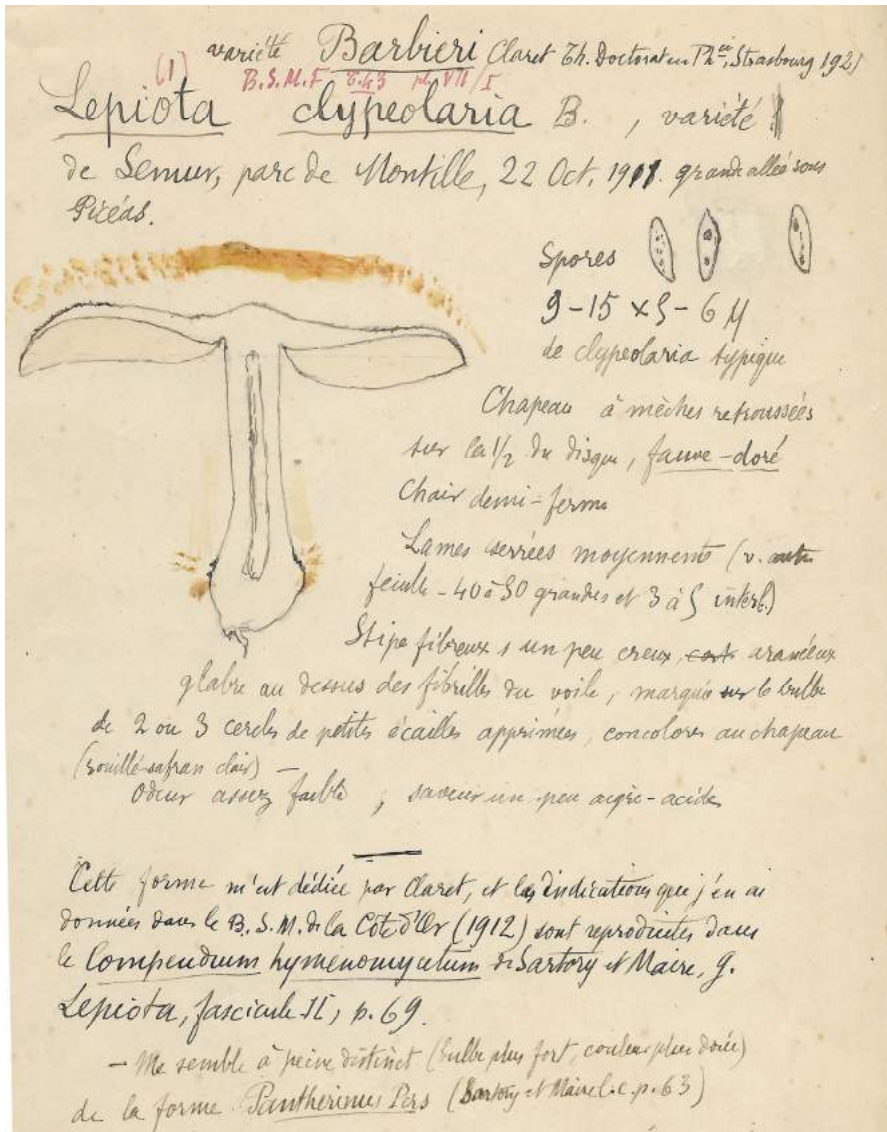 variété Barbieri Claret Th. Doctorat en Phcie, Strasbourg 1921
(1) B.S.M.F T.43 pl. VII/I
Lepiota clypeolaria B. , variété
de Semur, parc de Montille, 22 Oct. 1911. grande allée sous
Picéas.
Spores
9-15 x 5-6 µ
de clypeolaria typique
Chapeau à mèches retroussées
sur la 1/2 du disque, fauve-doré
Chair demi-ferme
Lames serrées moyennemt (v. autre
feuille - 40 à 50 grandes et 3 à 5 interl.)
Stipe fibreux s un peu creux, aranéeux
glabre au dessus des fibrilles du voile, marqué sur le bulbe
de 2 ou 3 cercles de petites écailles apprimées, concolores au chapeau
(rouillé-safran clair) —
Odeur assez faible, saveur un peu aigre-acide
Cette forme m'est dédiée par Claret, et les indications que j'en ai
données dans le B.S.M. de la Côte d'Or (1912) sont reproduites dans
le Compendium hymenomycetum de Sartory et Maire, g.
Lepiota, fascicule II, p. 69.
- Me semble à peine distinct (bulbe plus fort, couleur plus dorée)
de la forme Pantherinus Pers (Sartory et Maire l.c. p. 63)